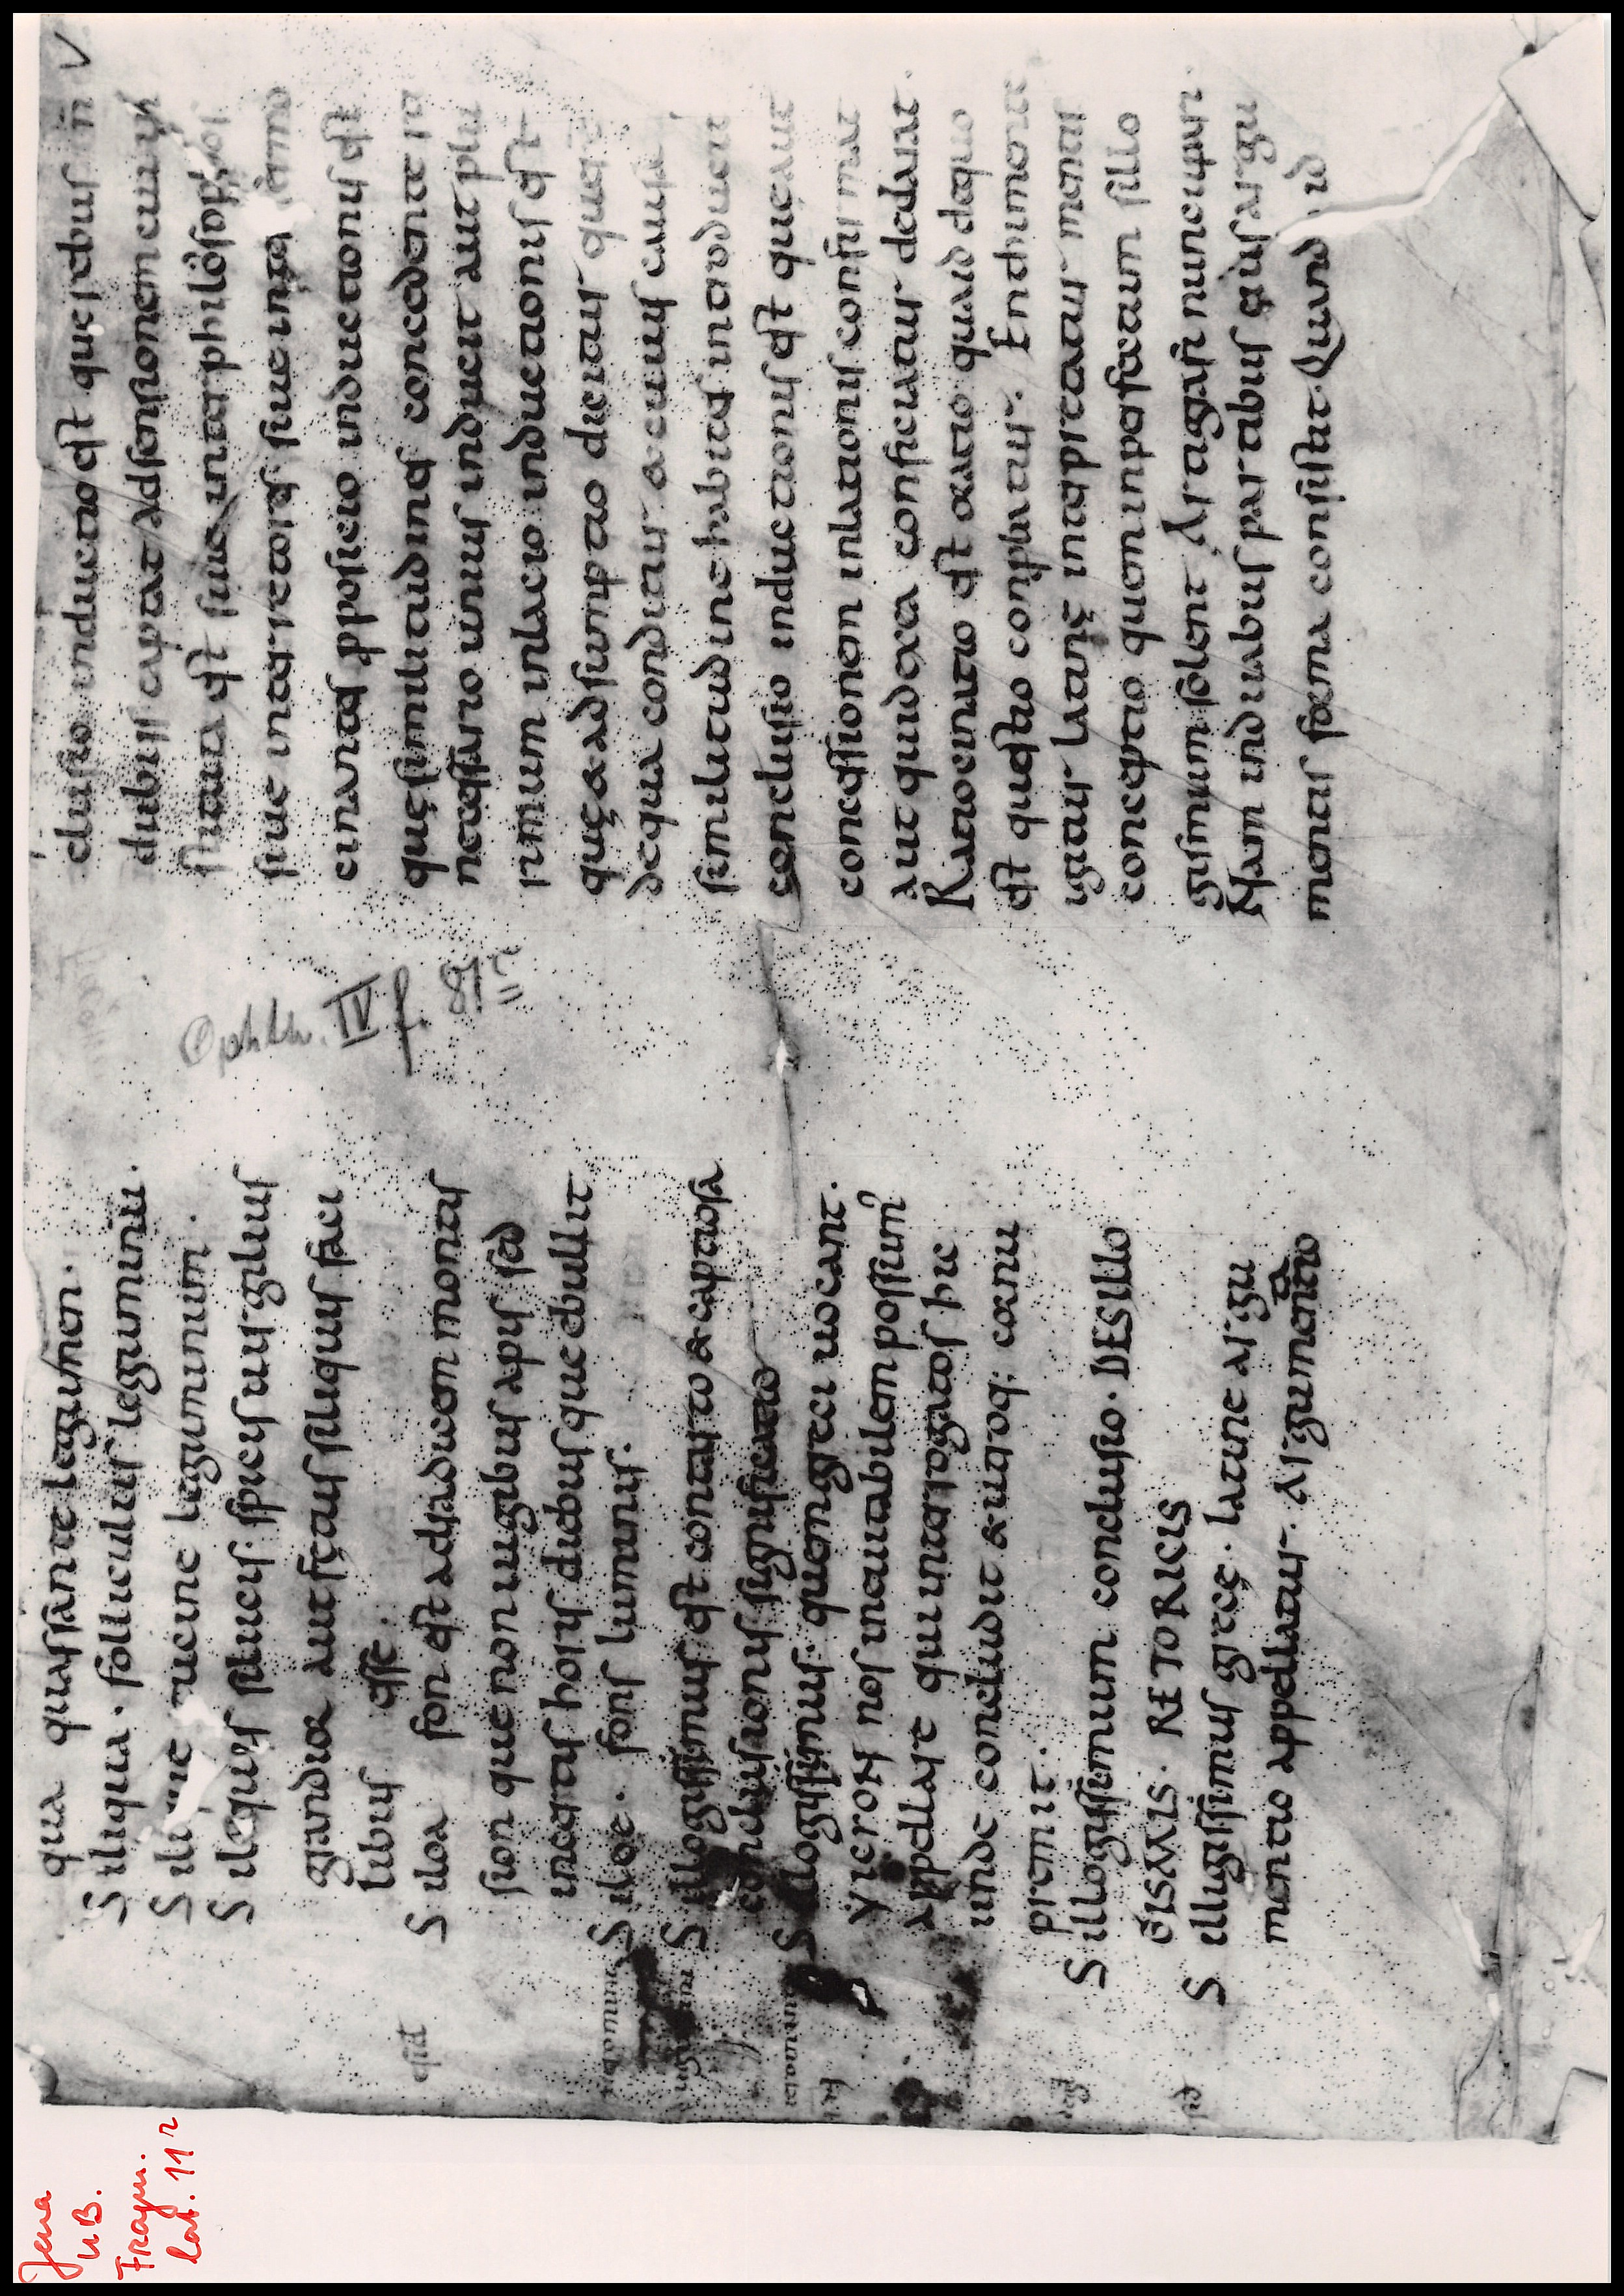 qua quassante legumen.
Siliqua. folliculus leguminũ.
leguminum.
Silequis siluicis. spicis uirgilius
grandior aut fętus siliquis faci
libus esse.
Siloa fon est ad radicem montis
sion que non iugibus apis sed
incertis horis diebus que ebullit
Siloe. fons luminis.
Sillogissimus est contorto & captiosa
conclusionis significatio
Sillogissimus. quem greci uocant.
yieron nos ineuitabilem possum̉
appellare qui interrogatos hic
inde concludit & utroq; cornu
premit.
Sillogissimum conclusio. DESILLO
GISMIS. RETORICIS
Silligissimus gręcę. latine argu
mentio appellatur. Argumentatio
clusio inductio est que rebus ñ
dubiis captat adsensionem cui
stituta est siue inter philosophos
siue inter retores siue inter
cinantes ꝓposicio inductionis est
quę similitudines concedente
necessario unius inducit aut plu
rimum inlacio inductionis est
quę & adsumptio dicitur que
de qua conditur & cuius causa
similitudine habites introducit
conclusio inductionis est que aut
concessionem inlationis confirmat
aut quid ex ea conficiatur declarat.
Ratiocinatio est oratio qua id de quo
est questio comprobatur. Enthimema
igitur latinę interpretatur mentis
conceptio quem inperfectum sillo
gismum solent Artagrafi nuncupari.
Nam in diuabus partibus eius argu
mentis forma consistit. Quando id
Ophthn. IV f. 81ʳ
Jena
UB.
Fragm.
lat. 11ʳ